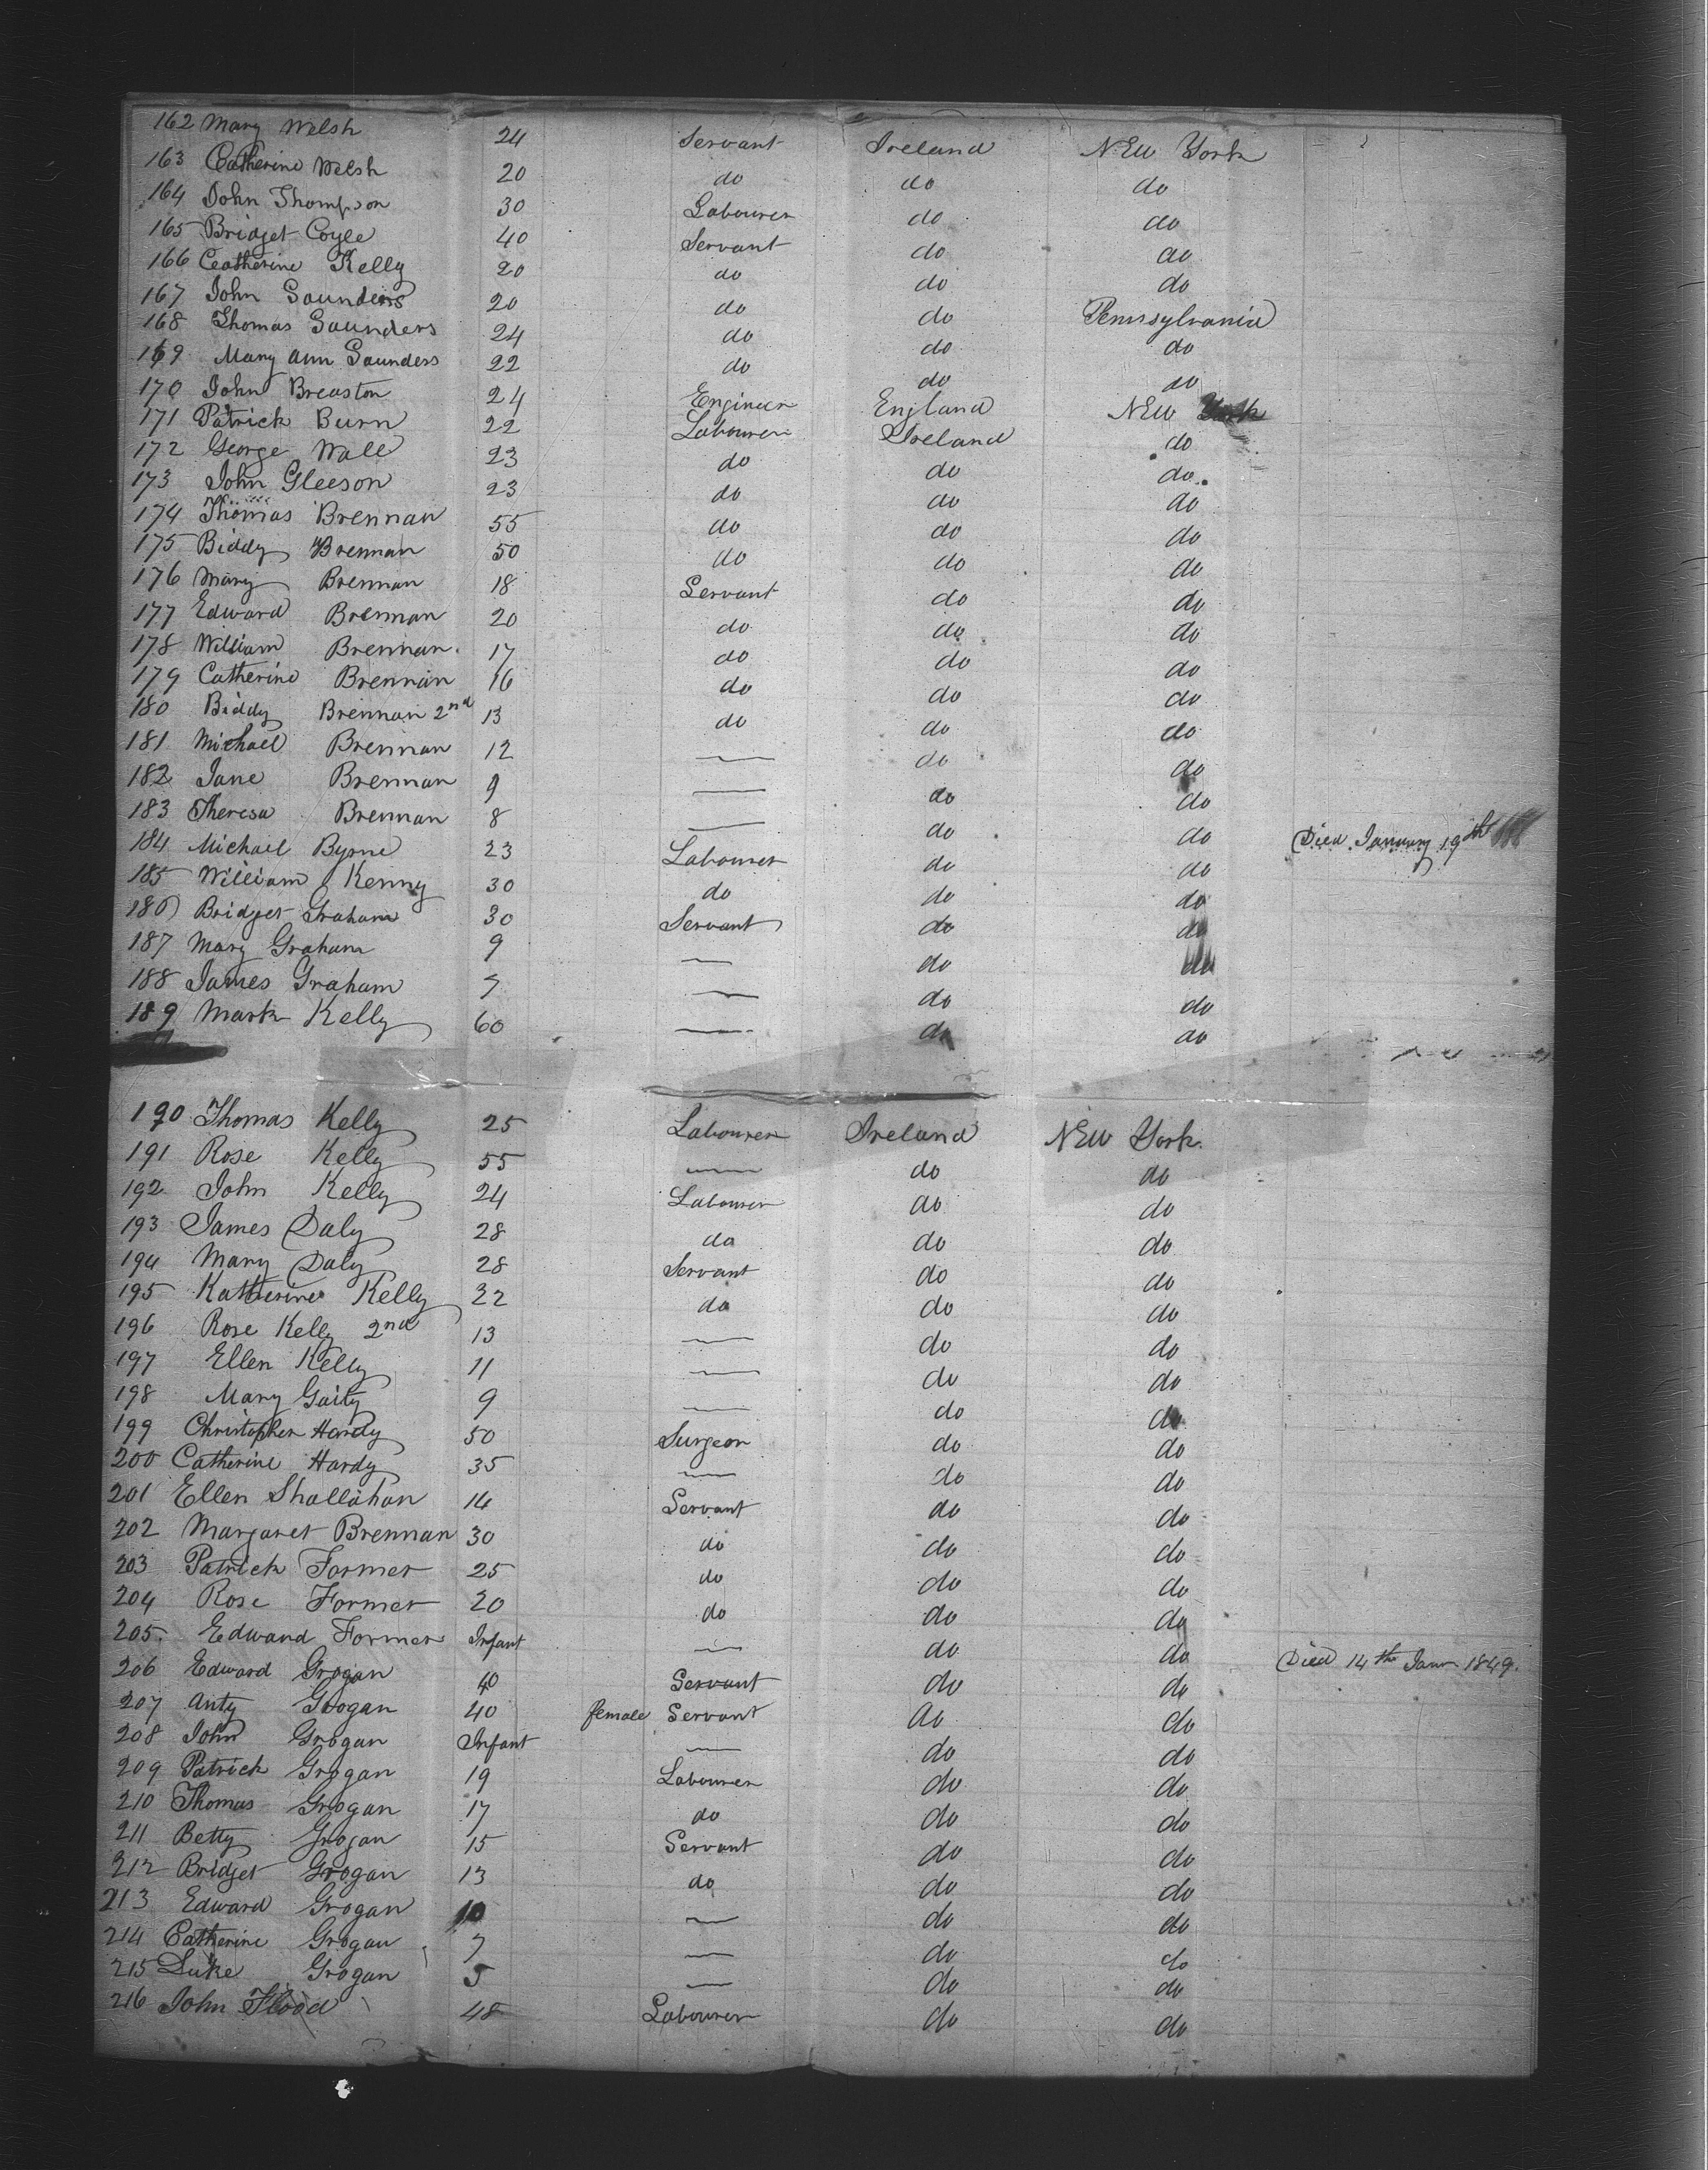 162 Mary Welsh 24 Servant Ireland New York
163 Catherine Welsh 20 do do do
164 John Thompson 30 Labourer do do
165 Bridget Coyle 40 Servant do do
166 Catherine Kelly 20 do do do
167 John Saunders 20 do do Pennsylvania
168 Thomas Saunders 24 do do do
169 Mary Ann Saunders 22 do do do
170 John Breaston 24 Engineer England New York
171 Patrick Burn 22 Labourer Ireland do
172 George Wall 23 do do do
173 John Gleeson 23 do do do
174 Thomas Brennan 55 do do do
175 Biddy Brennan 50 do do do
176 Mary Brennan 18 Servant do do
177 Edward Brennan 20 do do do
178 William Brennan 17 do do do
179 Catherine Brennan 16 do do do
180 Biddy Brennan 2nd 13 do do do
181 Michael Brennan 12 — do do
182 Jane Brennan 9 — do do
183 Theresa Brennan 8 — do do Died January 19th
184 Michael Byrne 23 Labourer do do
185 William Kenny 30 do do do
186 Bridget Graham 30 Servant do do
187 Mary Graham 9 — do do
188 James Graham 7 — do do
189 Mark Kelly 60 — do do
190 Thomas Kelly 25 Labourer Ireland New York
191 Rose Kelly 55 — do do
192 John Kelly 24 Labourer do do
193 James Daly 28 do do do
194 Mary Daly 28 Servant do do
195 Katherine Kelly 22 do do do
196 Rose Kelly 2nd 13 — do do
197 Ellen Kelly 11 — do do
198 Mary Gaity 9 — do do
199 Christopher Hardy 50 Surgeon do do
200 Catherine Hardy 35 — do do
201 Ellen Shallahan 14 Servant do do
202 Margaret Brennan 30 do do do
203 Patrick Former 25 do do do
204 Rose Former 20 do do do
205 Edward Former Infant — do do Died 14th Janr 1849.
206 Edward Grogan 40 Servant do do
207 Anty Grogan 40 female Servant do do
208 John Grogan Infant — do do
209 Patrick Grogan 19 Labourer do do
210 Thomas Grogan 17 do do do
211 Betty Grogan 15 Servant do do
212 Bridget Grogan 13 do do do
213 Edward Grogan 10 — do do
214 Catherine Grogan 7 — do do
215 Luke Grogan 5 — do do
216 John Flood 48 Labourer do do